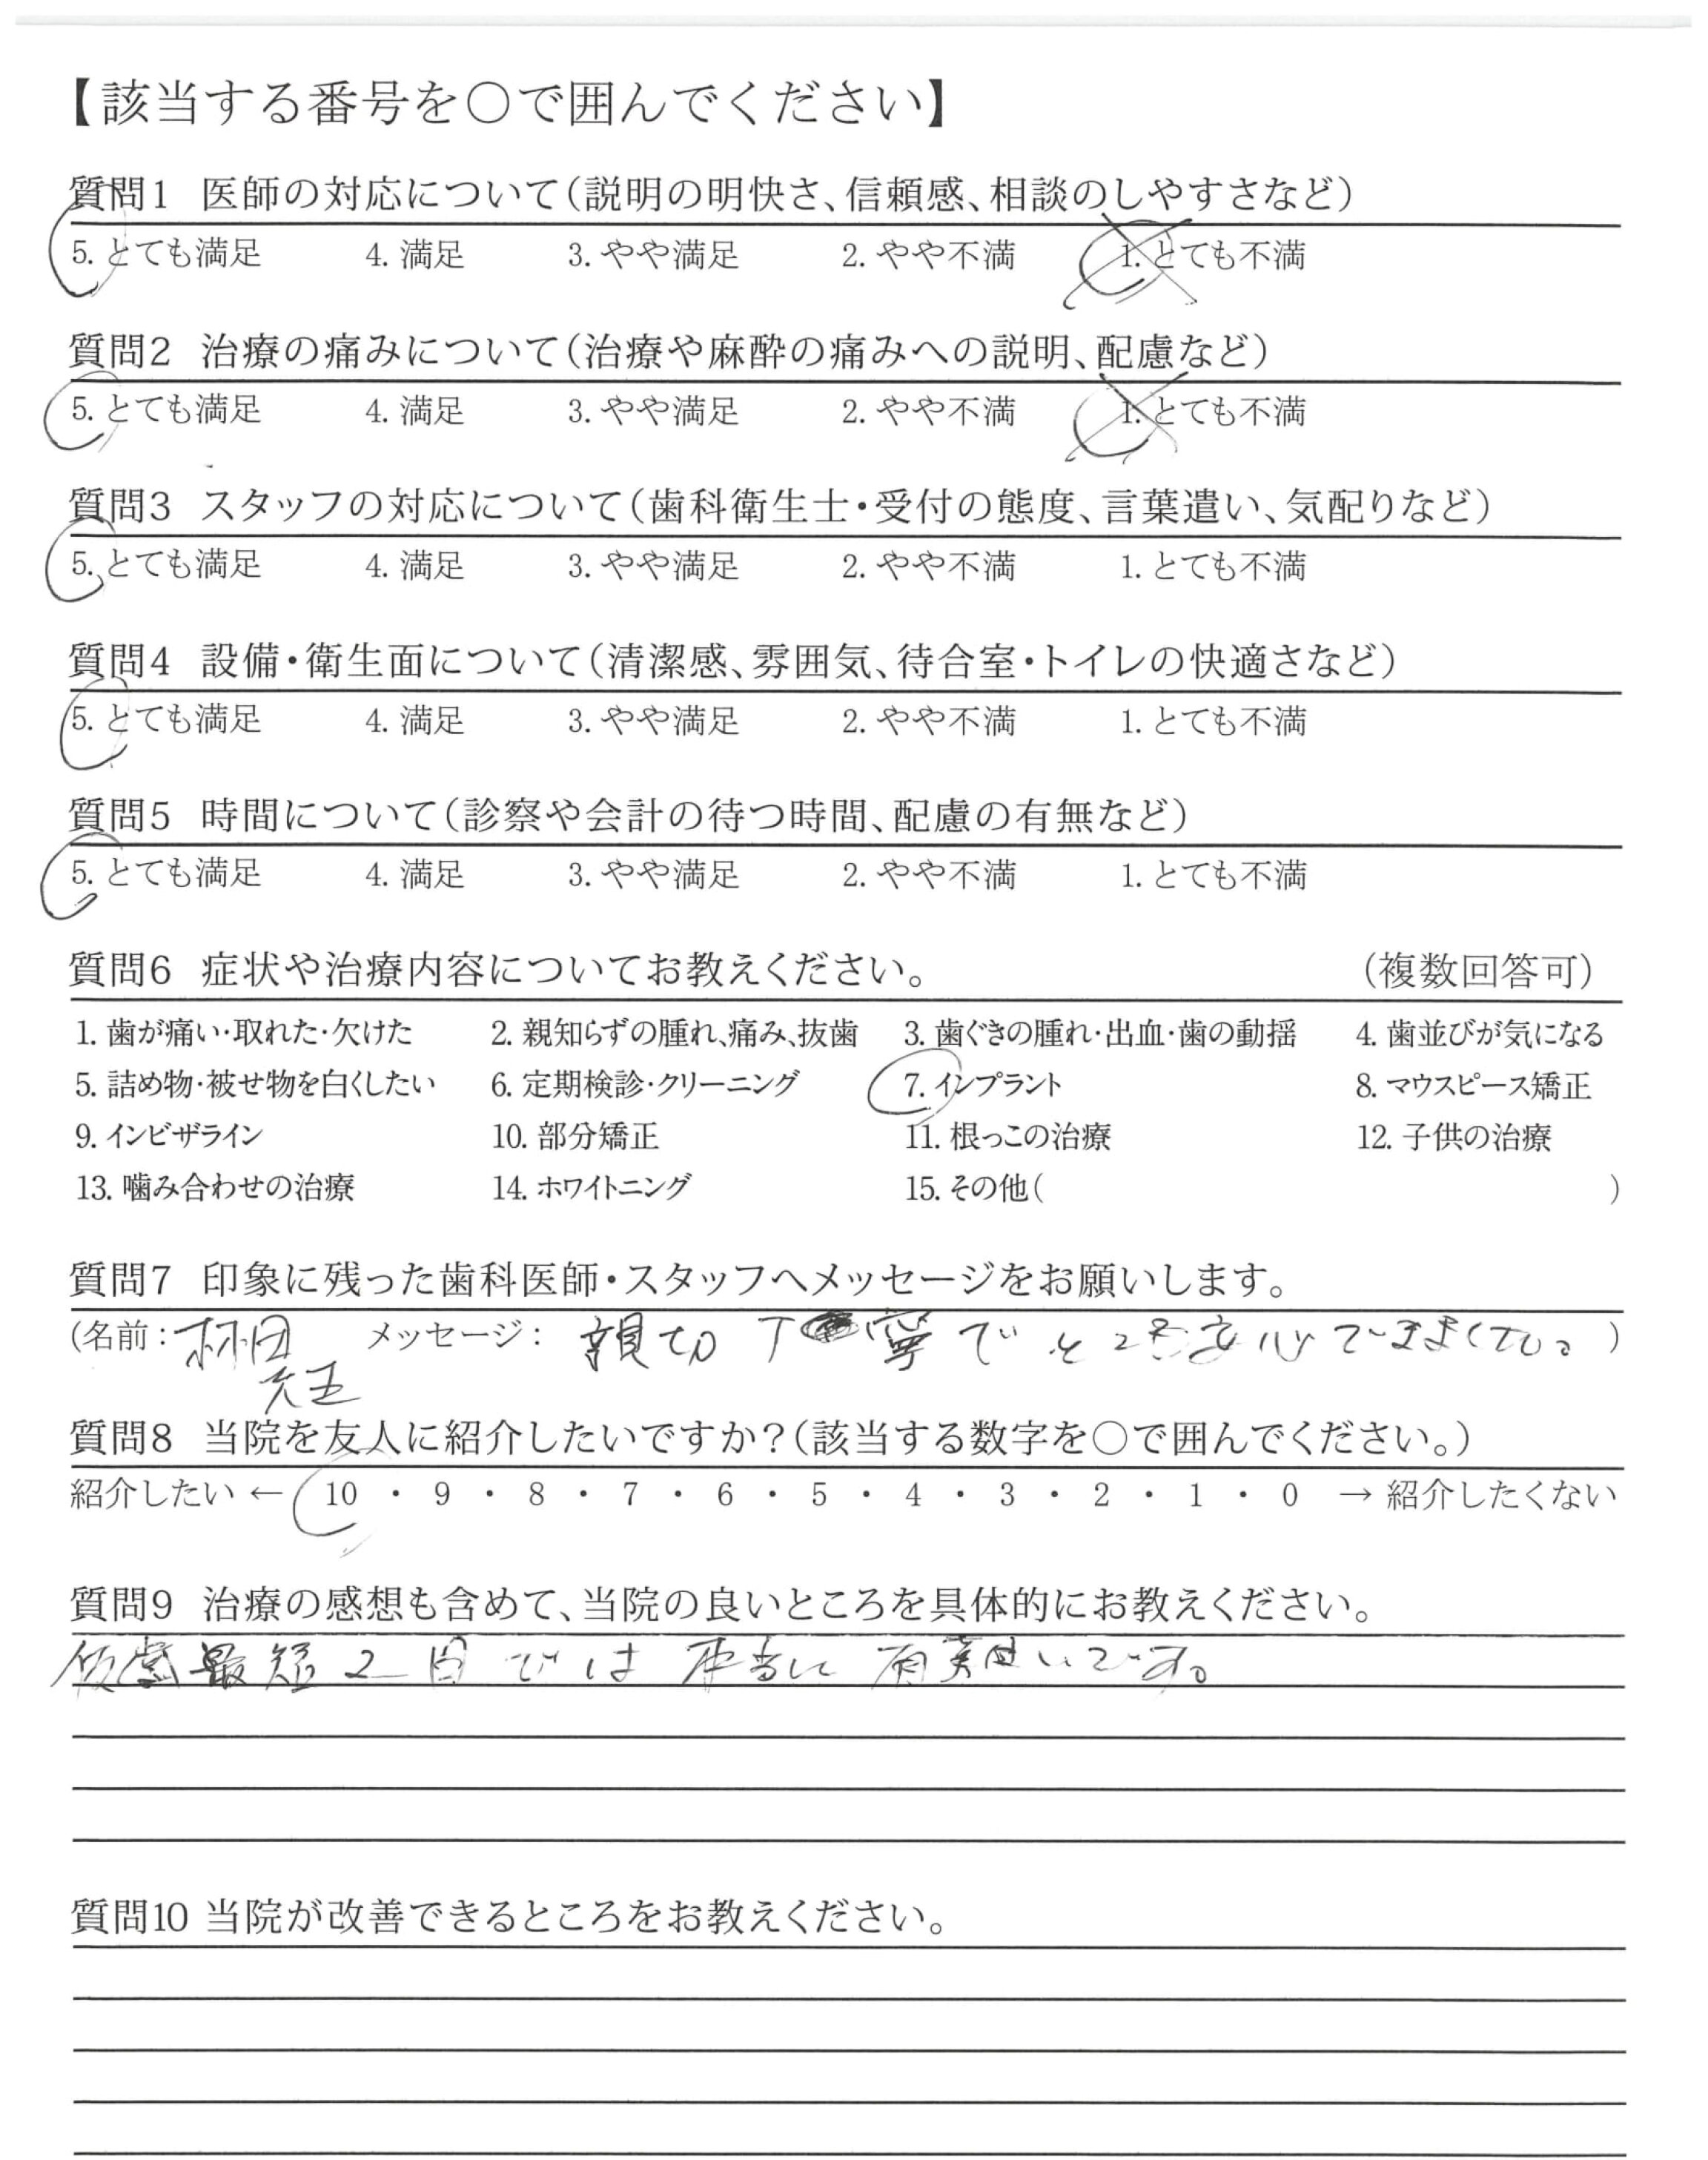 【該当する番号を○で囲んでください】
質問1 医師の対応について(説明の明快さ、信頼感、相談のしやすさなど)
5. とても満足 4. 満足 3. やや満足 2. やや不満 1. とても不満
質問2 治療の痛みについて(治療や麻酔の痛みへの説明、配慮など)
5. とても満足 4. 満足 3. やや満足 2. やや不満 1. とても不満
質問3 スタッフの対応について(歯科衛生士・受付の態度、言葉遣い、気配りなど)
5. とても満足 4. 満足 3. やや満足 2. やや不満 1. とても不満
質問4 設備・衛生面について(清潔感、雰囲気、待合室・トイレの快適さなど)
5. とても満足 4. 満足 3. やや満足 2. やや不満 1. とても不満
質問5 時間について(診察や会計の待つ時間、配慮の有無など)
5. とても満足 4. 満足 3. やや満足 2. やや不満 1. とても不満
質問6 症状や治療内容についてお教えください。 (複数回答可)
1. 歯が痛い・取れた・欠けた 2. 親知らずの腫れ、痛み、抜歯 3. 歯ぐきの腫れ・出血・歯の動揺 4. 歯並びが気になる
5. 詰め物・被せ物を白くしたい 6. 定期検診・クリーニング 7. インプラント 8. マウスピース矯正
9. インビザライン 10. 部分矯正 11. 根っこの治療 12. 子供の治療
13. 噛み合わせの治療 14. ホワイトニング 15. その他( )
質問7 印象に残った歯科医師・スタッフへメッセージをお願いします。
(名前: メッセージ: 親切丁寧で 安心 )
先生
質問8 当院を友人に紹介したいですか?(該当する数字を○で囲んでください。)
紹介したい ← 10 ・ 9 ・ 8 ・ 7 ・ 6 ・ 5 ・ 4 ・ 3 ・ 2 ・ 1 ・ 0 → 紹介したくない
質問9 治療の感想も含めて、当院の良いところを具体的にお教えください。
仮歯最短2日 は 本当に です。
質問10 当院が改善できるところをお教えください。